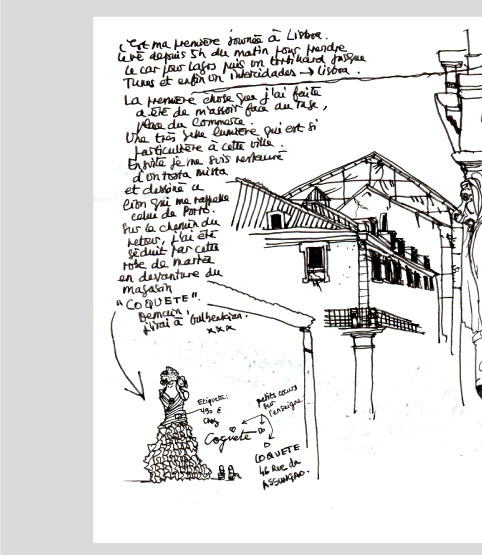 C'est ma première journée à Lisboa.
Levé depuis 5h du matin pour prendre
le car pour Lagos puis un tortillard jusque
Tunes et enfin un intercidades → Lisboa.
La première chose que j'ai faite
a été de m'assoir face au Tage,
place du Commerce.
Une très belle lumière qui est si
particulière à cette ville.
Ensuite je me suis restauré
d'un tosta mista
et dessiné ce
lion qui me rappelle
celui de Porto.
Sur le chemin du
retour, j'ai été
séduit par cette
robe de mariée
en devanture du
magasin
"COQUETE".
Demain,
j'irai à Gulbenkian.
xxx
Etiquette:
490 €
chez
Coquete
petits cœurs
sur
l'enseigne
COQUETE
46 Rue da
ASSUNÇAO.